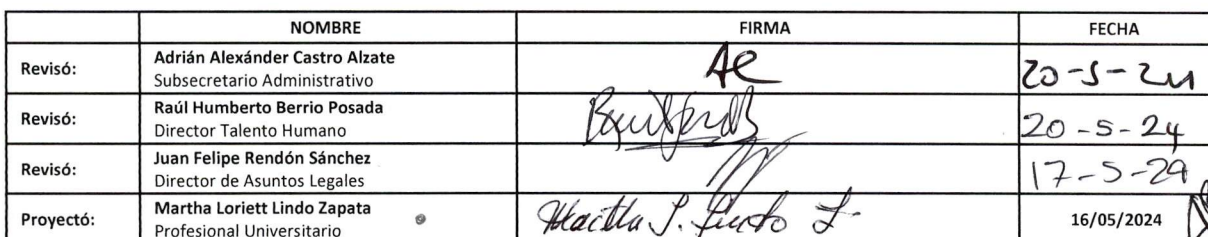 NOMBRE FIRMA FECHA
Revisó: Adrián Alexánder Castro Alzate
Subsecretario Administrativo
AC 20-5-24
Revisó: Raúl Humberto Berrio Posada
Director Talento Humano
20-5-24
Revisó: Juan Felipe Rendón Sánchez
Director de Asuntos Legales
17-5-24
Proyectó: Martha Loriett Lindo Zapata
Profesional Universitario
16/05/2024